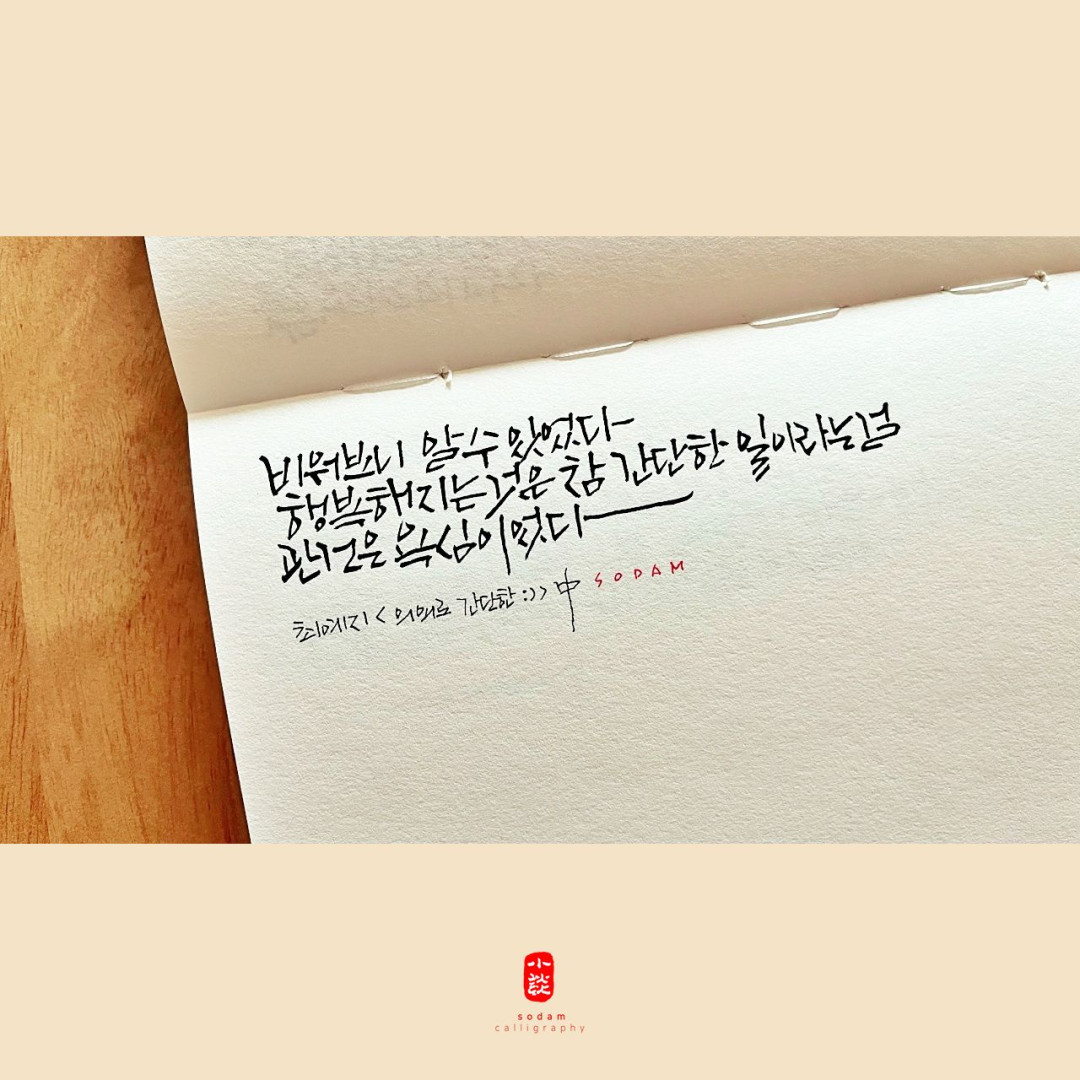 비워보니 알 수 있었다
행복해지는 것은 참 간단한 일이라는 걸
관건은 욕심이었다
최예지 < 의외로 간단한 :) > 中 SODAM
小談
sodam
calligraphy